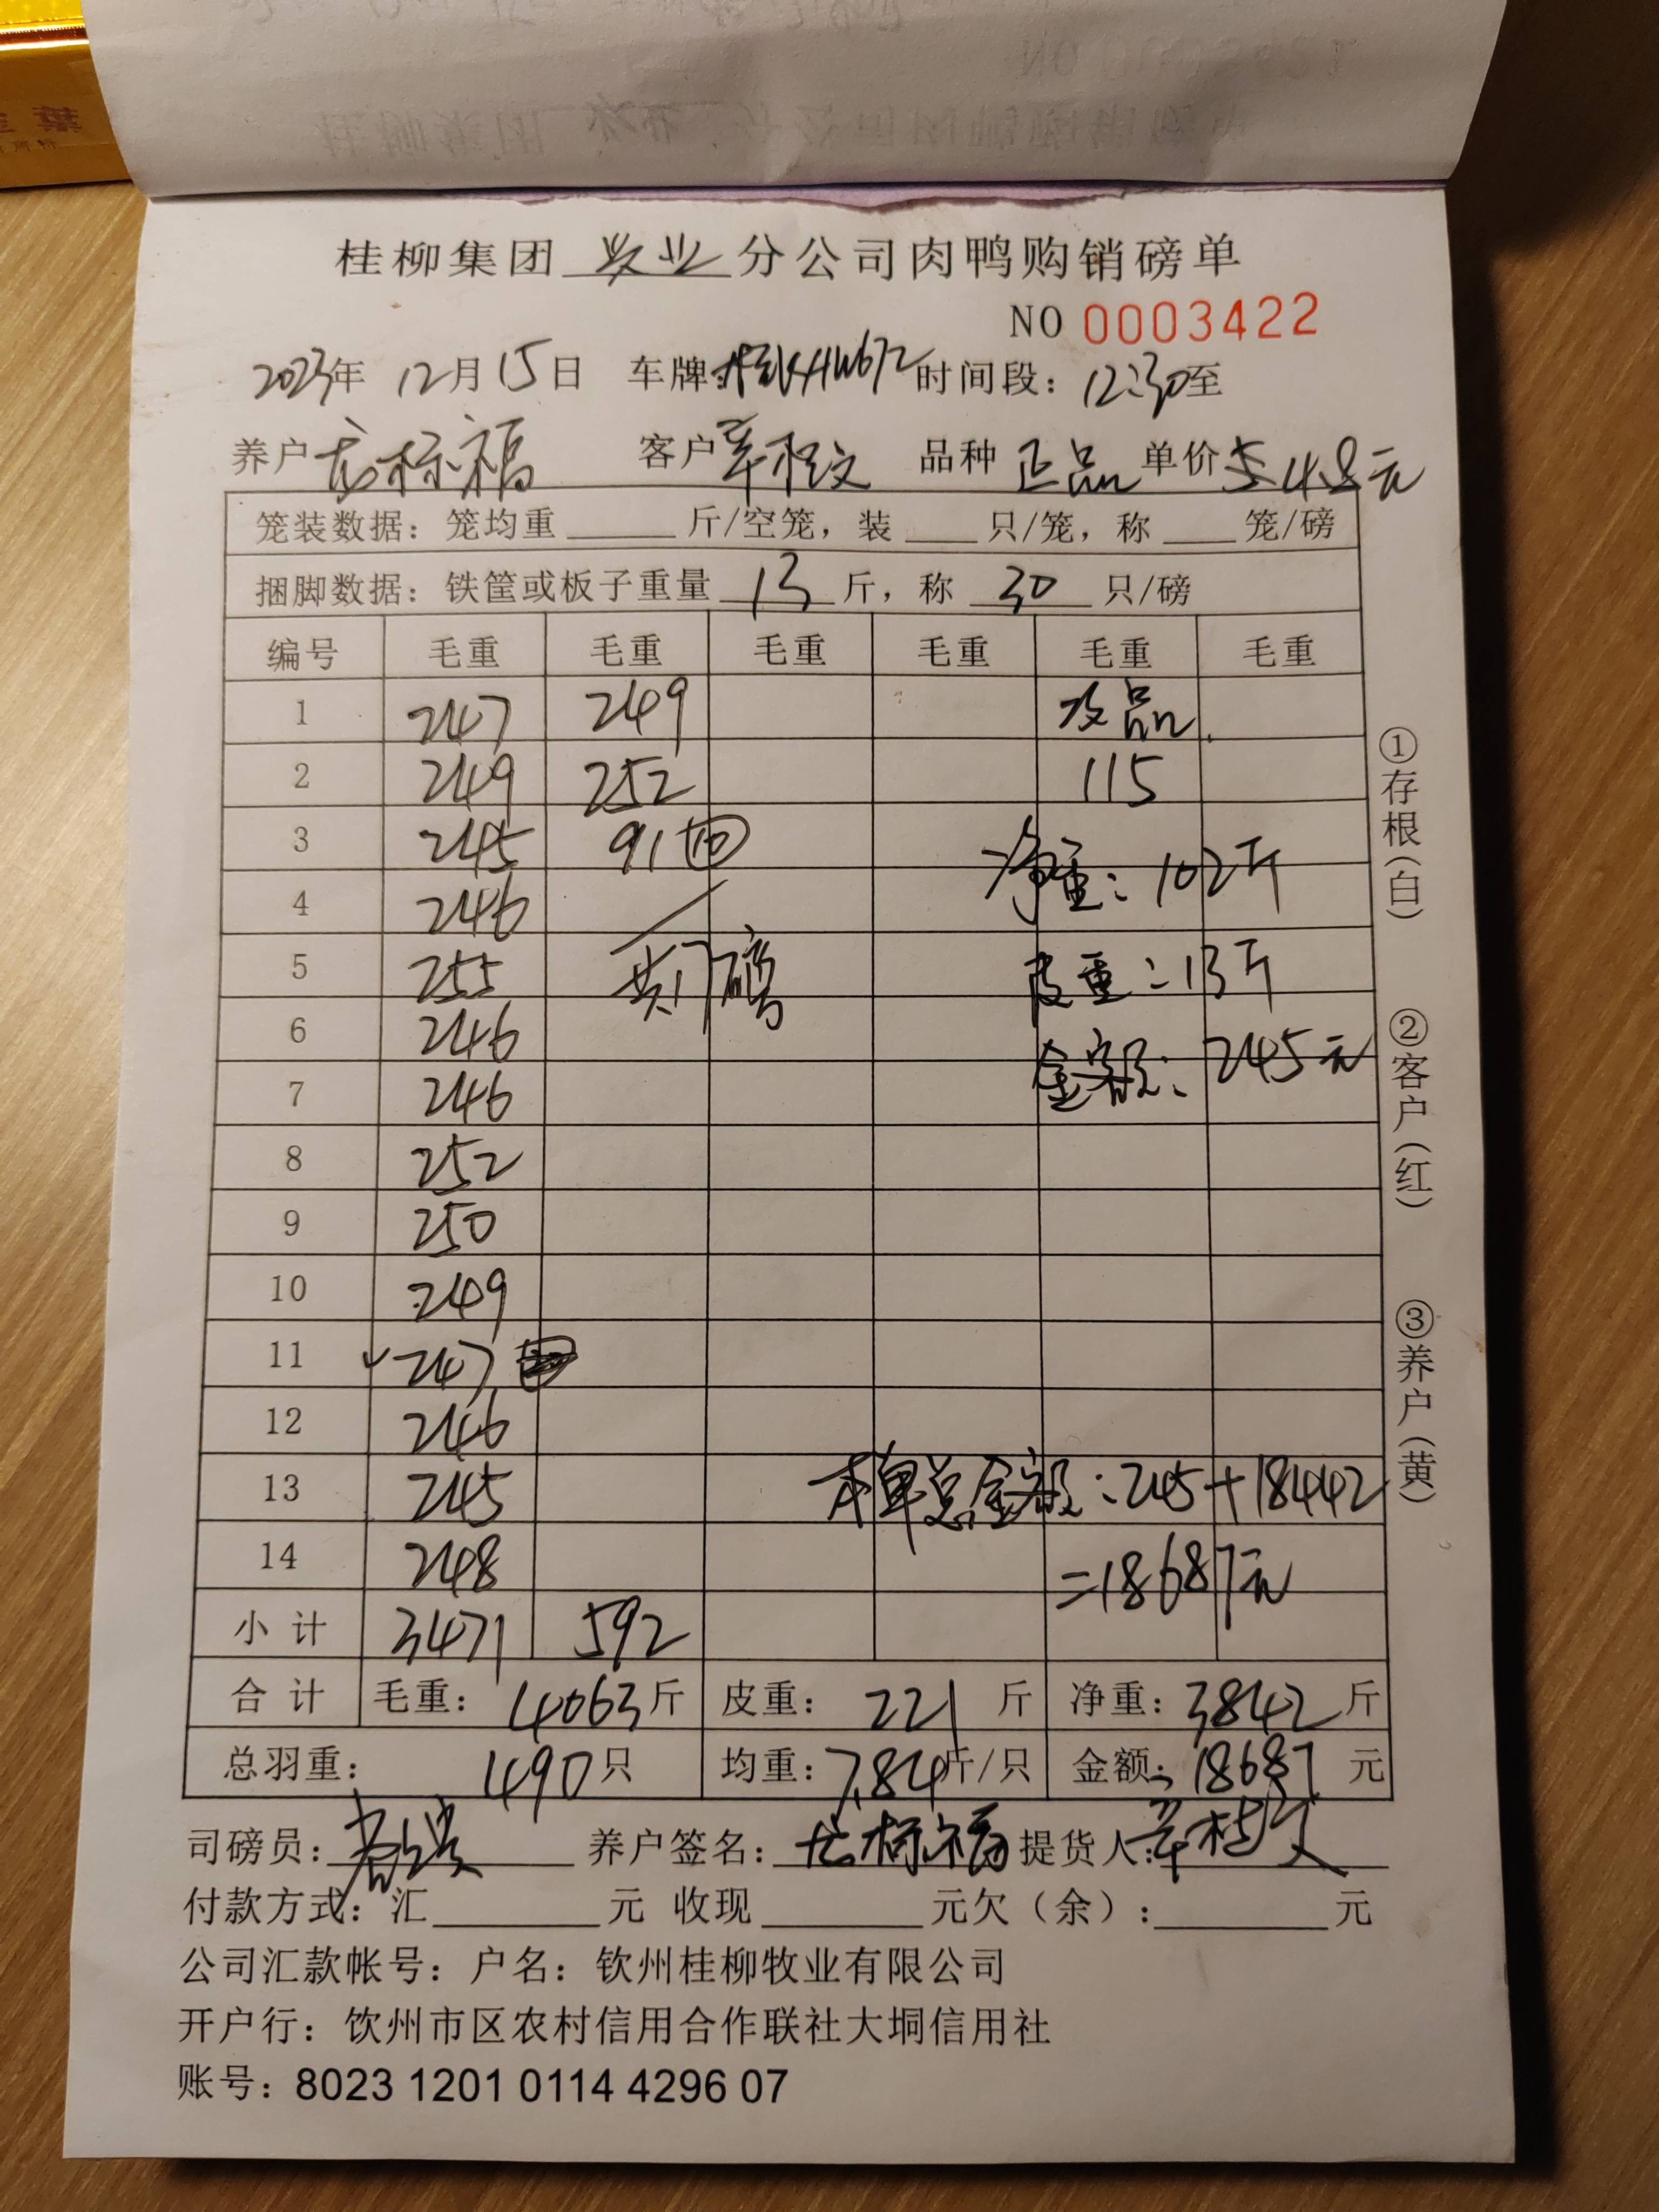 桂柳集团 兴业 分公司肉鸭购销磅单
NO 0003422
2023年 12月15日 车牌: 时间段: 12:30至
养户 龙标福 客户 品种 正品 单价 5.48元
笼装数据: 笼均重 斤/空笼, 装 只/笼, 称 笼/磅
捆脚数据: 铁筐或板子重量 13 斤, 称 30 只/磅
编号 毛重 毛重 毛重 毛重 毛重 毛重
1 247 249 次品
2 249 252 115
3 245 91⑩
净重: 102斤
4 246
5 255 共17磅 皮重: 13斤
6 246
金额: 245元
7 246
8 252
9 250
10 249
11 247
12 246
13 245 本单总金额: 245+18442
14 248 =18687元
小计 3471 592
合计 毛重: 4063斤 皮重: 221 斤 净重: 3842斤
总羽重: 490只 均重: 7.84斤/只 金额: 18687 元
司磅员: 养户签名: 龙标福 提货人:
付款方式: 汇 元 收现 元欠(余): 元
公司汇款帐号: 户名: 钦州桂柳牧业有限公司
开户行: 饮州市区农村信用合作联社大垌信用社
账号: 8023 1201 0114 4296 07
①存根(白)
②客户(红)
③养户(黄)